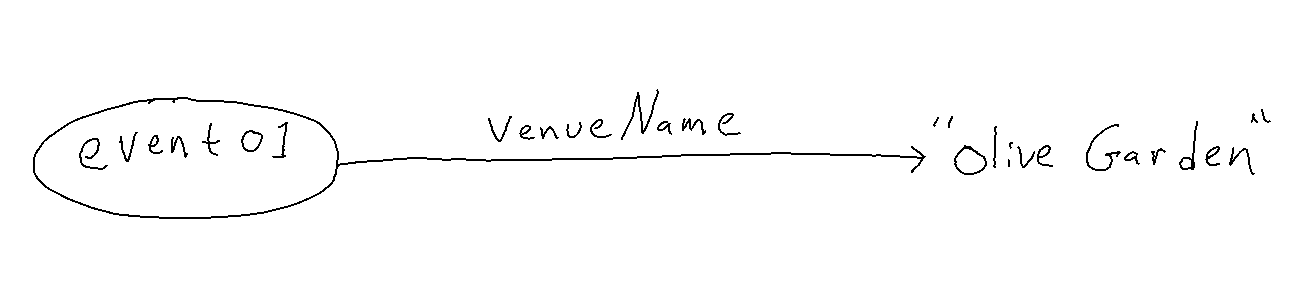 event01 venueName "Olive Garden"